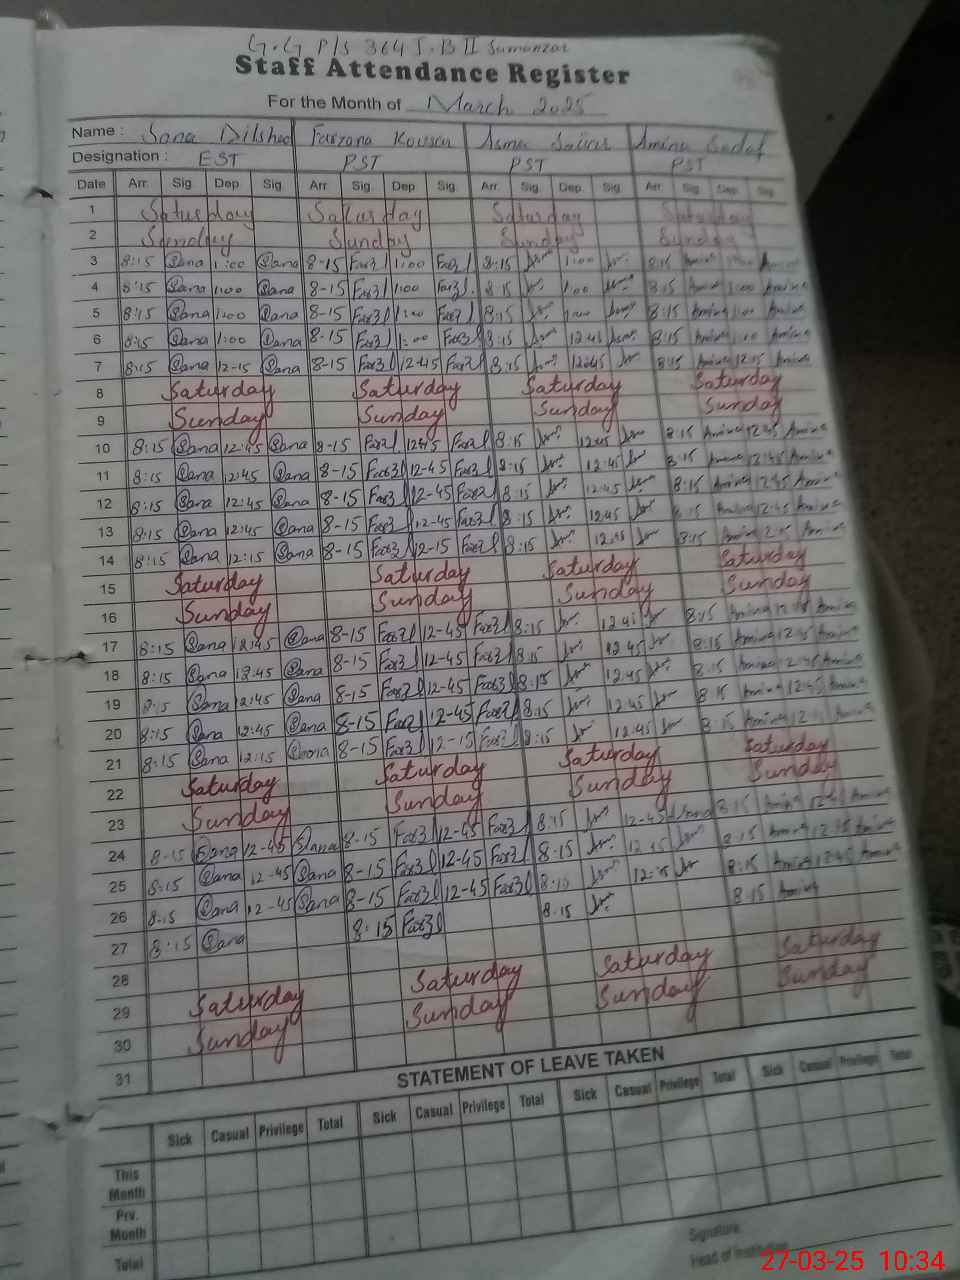 G.G P/S 364 J.B II Sumanzar
Staff Attendance Register
For the Month of March 2025
Name : Sana Dilshad Farzana Kousar Asma Amina Sadaf
Designation : EST PST PST PST
Date Arr. Sig. Dep. Sig Arr. Sig. Dep Sig. Arr. Sig Dep. Sig. Arr. Sig. Dep. Sig.
1 Saturday Saturday Saturday Saturday
2 Sunday Sunday Sunday Sunday
3 8:15 Sana 1:00 Sana 8-15 Far3l 1:00 Far3l 8:15 1:00 8:15 Amina 1:00 Amina
4 8:15 Sana 1:00 Sana 8-15 Far3l 1:00 Far3l 8:15 1:00 8:15 Amina 1:00 Amina
5 8:15 Sana 1:00 Sana 8-15 Far3l 1:00 Far3l 8:15 1:00 8:15 Amina 1:00 Amina
6 8:15 Sana 1:00 Sana 8-15 Far3l 1:00 Far3l 8:15 12:45 8:15 Amina 1:00 Amina
7 8:15 Sana 12-15 Sana 8-15 Far3l 12-45 Far3l 8:15 12:45 8:15 Amina 12:15 Amina
8 Saturday Saturday Saturday Saturday
9 Sunday Sunday Sunday Sunday
10 8:15 Sana 12:45 Sana 8-15 Far3l 12:45 Far3l 8:15 12:45 8:15 Amina 12:45 Amina
11 8:15 Sana 12:45 Sana 8-15 Far3l 12-45 Far3l 8:15 12:45 8:15 Amina 12:45 Amina
12 8:15 Sana 12:45 Sana 8-15 Far3l 12-45 Far3l 8:15 12:45 8:15 Amina 12:45 Amina
13 8:15 Sana 12:45 Sana 8-15 Far3l 12-45 Far3l 8:15 12:45 8:15 Amina 12:45 Amina
14 8:15 Sana 12:15 Sana 8-15 Far3l 12-15 Far3l 8:15 12:45 8:15 Amina 12:15 Amina
15 Saturday Saturday Saturday Saturday
16 Sunday Sunday Sunday Sunday
17 8:15 Sana 12:45 Sana 8-15 Far3l 12-45 Far3l 8:15 12:45 8:15 Amina Amina
18 8:15 Sana 12:45 Sana 8-15 Far3l 12-45 Far3l 8:15 12:45 8:15 Amina 12:45 Amina
19 8:15 Sana 12:45 Sana 8-15 Far3l 12-45 Far3l 8:15 12:45 8:15 Amina 12:45 Amina
20 8:15 Sana 12:45 Sana 8-15 Far3l 12-45 Far3l 8:15 12:45 8:15 Amina 12:45 Amina
21 8:15 Sana 12:15 Sana 8-15 Far3l 12-15 Far3l 8:15 12:45 8:15 Amina Amina
22 Saturday Saturday Saturday Saturday
23 Sunday Sunday Sunday Sunday
24 8-15 Sana 12-45 Sana 8-15 Far3l 12-45 Far3l 8:15 12-45 8:15 Amina 12:45 Amina
25 8:15 Sana 12-45 Sana 8-15 Far3l 12-45 Far3l 8:15 12:45 8:15 Amina 12:45 Amina
26 8:15 Sana 12-45 Sana 8-15 Far3l 12-45 Far3l 8:15 12:45 8:15 Amina 12:45 Amina
27 8:15 Sana 8:15 Far3l 8:15 8:15 Amina
28
29 Saturday Saturday Saturday Saturday
30 Sunday Sunday Sunday Sunday
31
STATEMENT OF LEAVE TAKEN
Sick Casual Privilege Total Sick Casual Privilege Total Sick Casual Privilege Total Sick Casual Privilege Total
This Month
Prv. Month
Total
Signature
Head of Institution
27-03-25 10:34